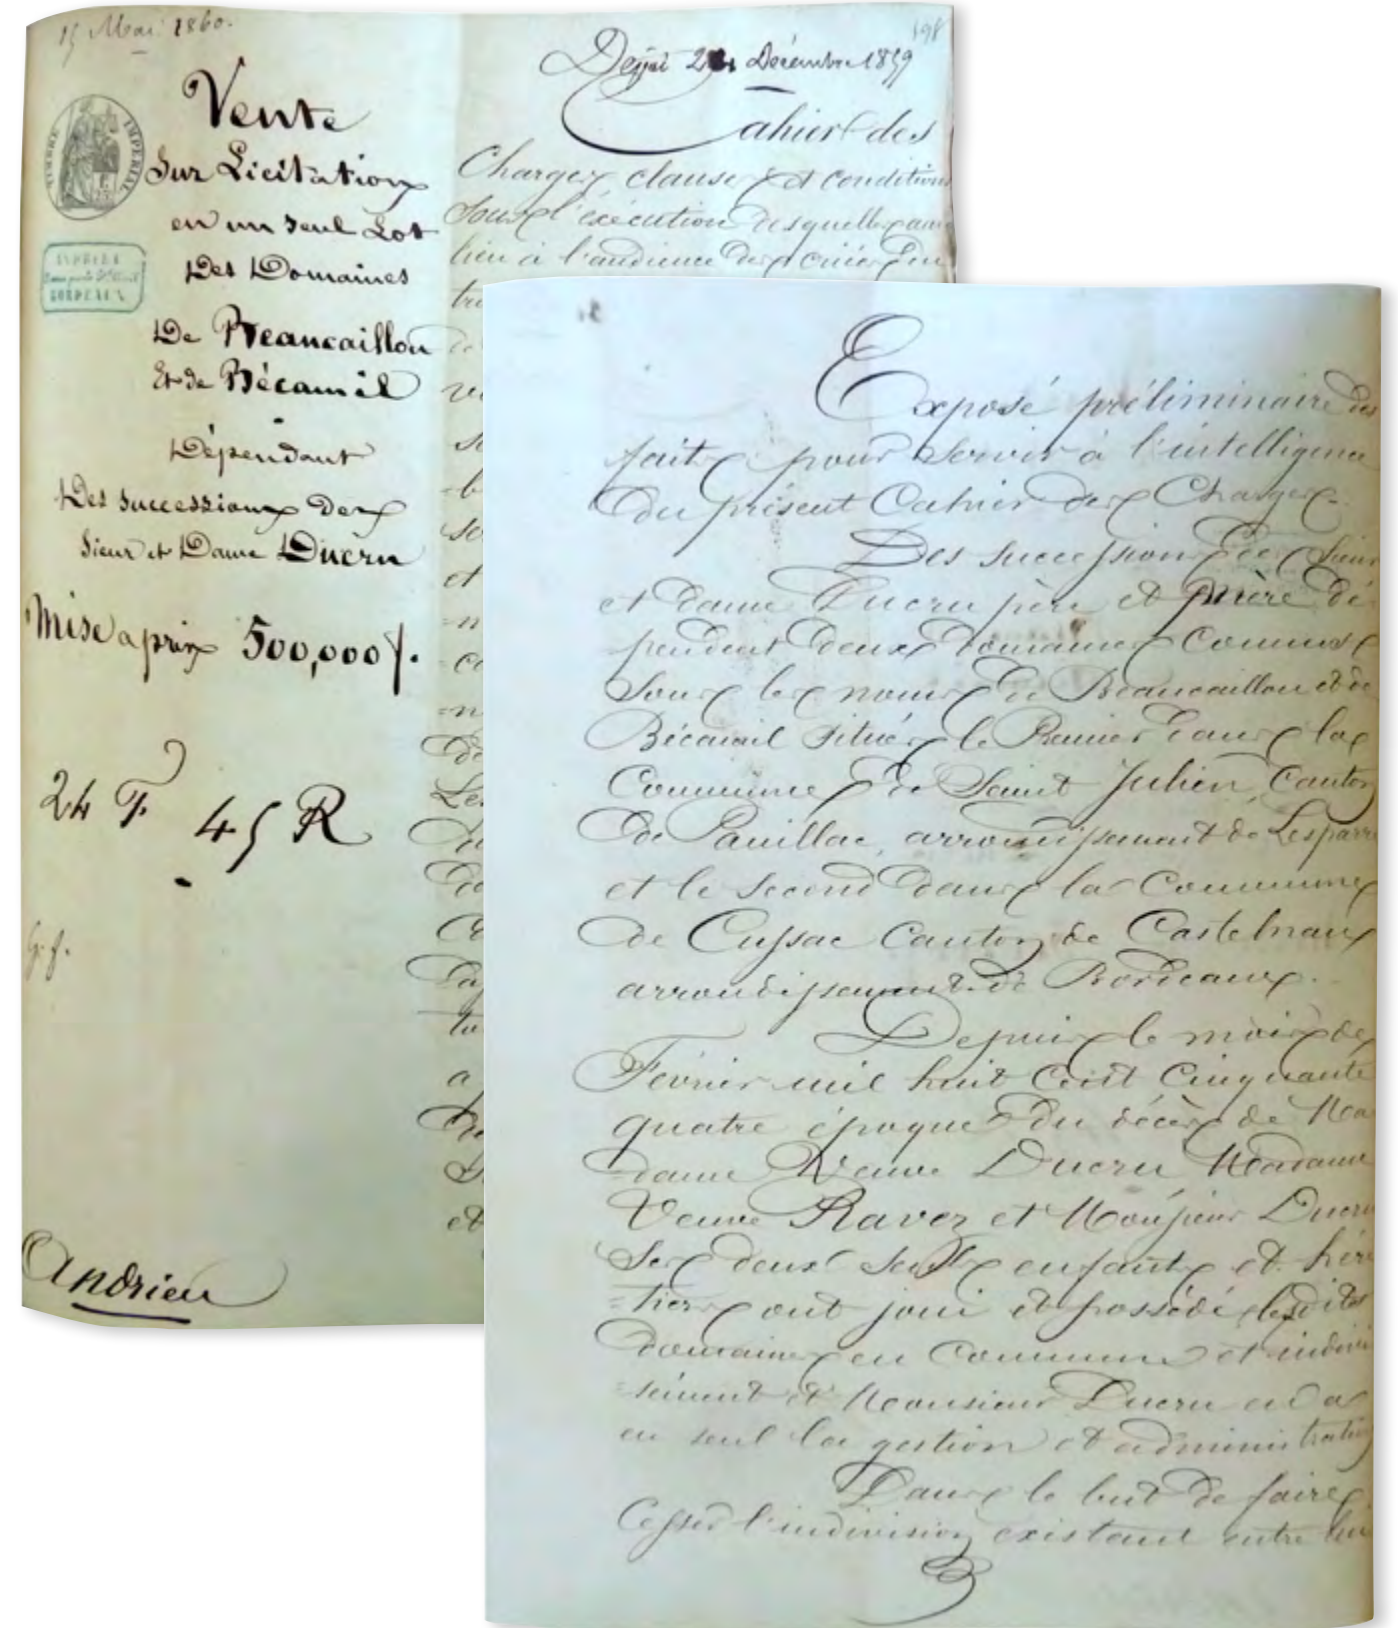 15 Mai 1860.
Vente
Sur Licitation
en un seul Lot
Des Domaines
De Beaucaillou
Et de Bécamil
Dépendant
Des successions des
Sieur et Dame Ducru
Mise a prix 500,000 f.
24 F. 45 R
G. f.
Andrieu
TIMBRE IMPERIAL
ANDRIEU
BORDEAUX
198
Décembre 1859
Cahier des
Charges, clauses et conditions
Sous l'exécution desquelles aura
lieu à l'audience des criées du
Exposé préliminaire des
faits pour servir à l'intelligence
du présent Cahier des Charges.
Des successions de Sieur
et dame Ducru père et mère dé
pendent deux domaines connus
Sous les noms de Beaucaillou et de
Bécamil situés, le Premier dans la
Commune de Saint Julien, Canton
de Pauillac, arrondissement de Lesparre
et le second dans la Commune
de Cussac Canton de Castelnau
arrondissement de Bordeaux.
Depuis le mois de
Février mil huit cent cinquante
quatre époque du décès de Ma
=dame Veuve Ducru Madame
Veuve Ravez et Monsieur Ducru
Ses deux seuls enfants et héri
=tiers ont joui et possédé lesdits
domaines en Commun et indivi
=sément et Monsieur Ducru en a
eu seul la gestion et administration
Dans le but de faire
Cesser l'indivision existant entre lui